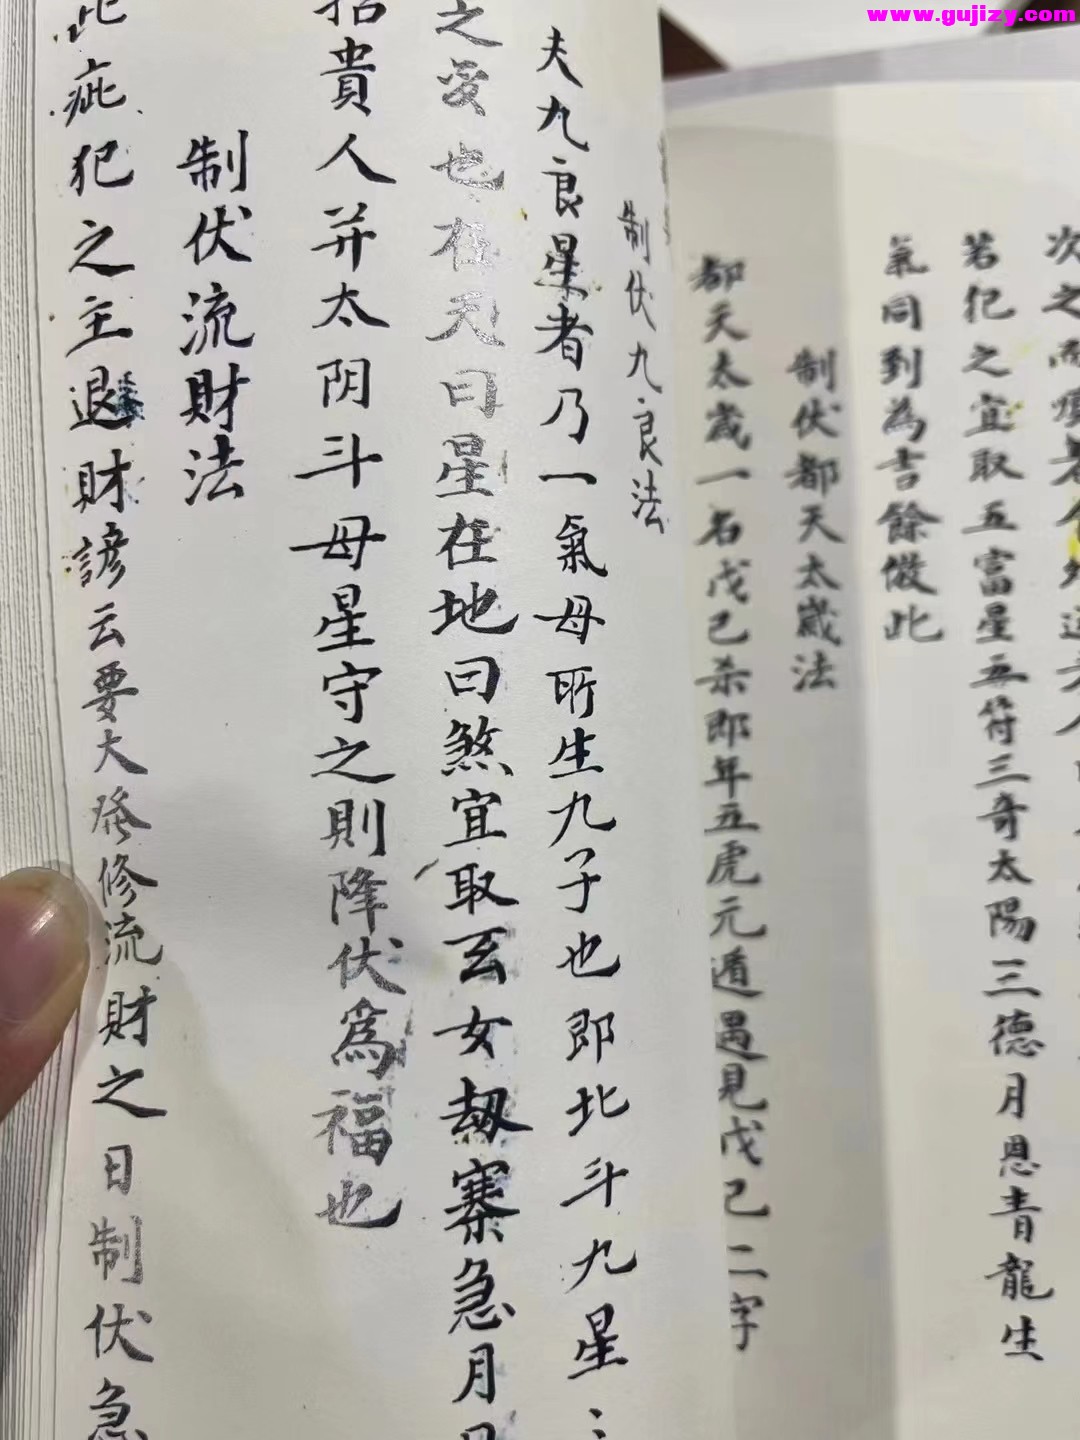 www.gujizy.com
次之
若犯之宜取五富星五符三奇太陽三德月恩青龍生
氣同到為吉餘倣此
制伏都天太歲法
都天太歲一名戊己杀即年五虎元遁遇見戊己二字
制伏九良法
夫九良星者乃一氣母所生九子也即北斗九星
之变也在天曰星在地曰煞宜取玄女刼寨急月
招貴人并太阴斗母星守之則降伏爲福也
制伏流財法
此疵犯之主退財諺云要大發修流財之日制伏急